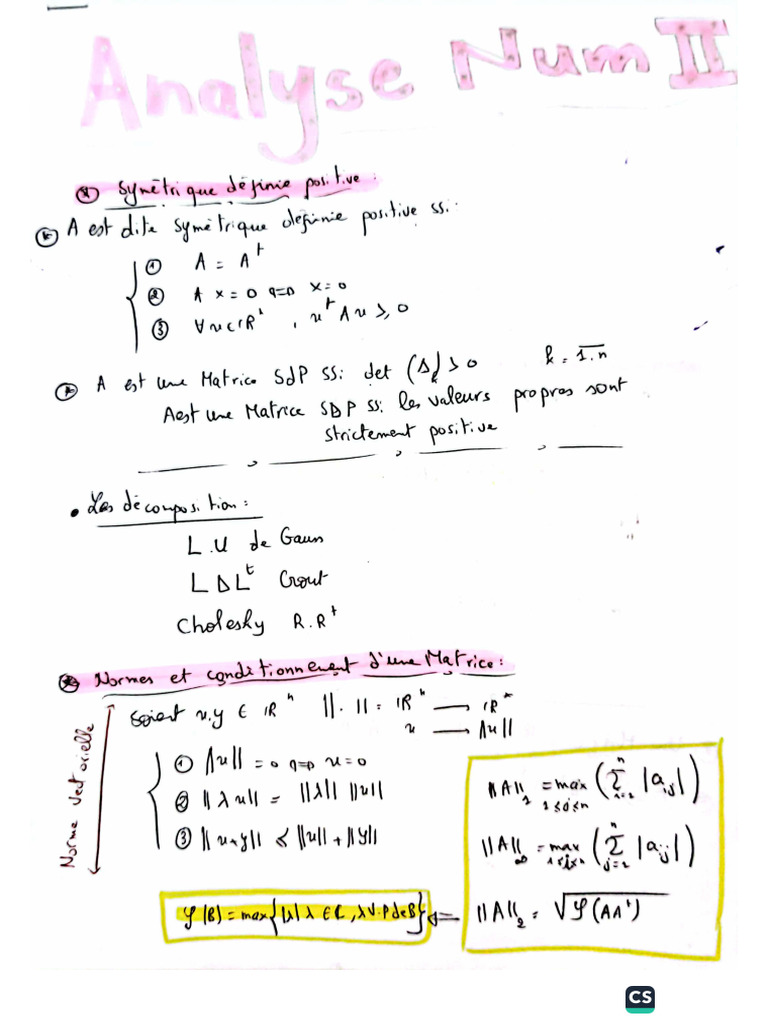 Analyse Num II
Symétrique définie positive :
A est dite symétrique définie positive ssi :
① A = Aᵗ
② A x = 0 <=> x = 0
③ ∀x ∈ ℝᵗ , xᵗ A x ≥ 0
A est une Matrice SdP ssi det (Δₖ) > 0 k = 1..n
A est une Matrice SDP ssi les valeurs propres sont
strictement positive
Les décomposition :
L.U de Gauss
LDLᵗ Crout
Cholesky R.Rᵗ
Normes et conditionnement d'une Matrice :
Norme vectorielle
Soient x.y ∈ ℝⁿ ||.|| = ℝⁿ → ℝ⁺
x → ||x||
① ||x|| = 0 <=> x = 0
② ||λx|| = ||λ|| ||x||
③ ||x+y|| ≤ ||x|| + ||y||
||A||₁ = max 1≤j≤n (Σⁿᵢ₌₁ |aᵢⱼ|)
||A||∞ = max 1≤i≤n (Σⁿⱼ₌₁ |aᵢⱼ|)
||A||₂ = √φ(AAᵗ)
φ(B) = max{|λ| λ ∈ ℂ, λ V.P de B}
CS